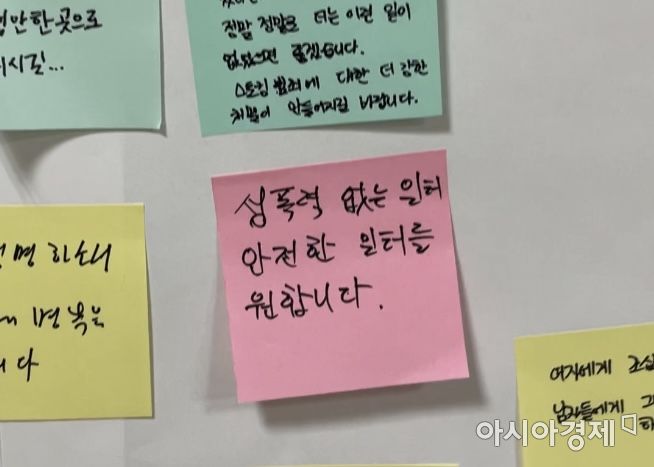 편안한 곳으로
시길...
정말 정말로 더는 이런 일이
없었으면 좋겠습니다.
스토킹 범죄에 대한 더 강한
처벌이 만들어지길 바랍니다.
성폭력 없는 일터
안전한 일터를
원합니다.
명하소서
명복을
니다
여자에게 조심
남자들에게 그
아시아경제